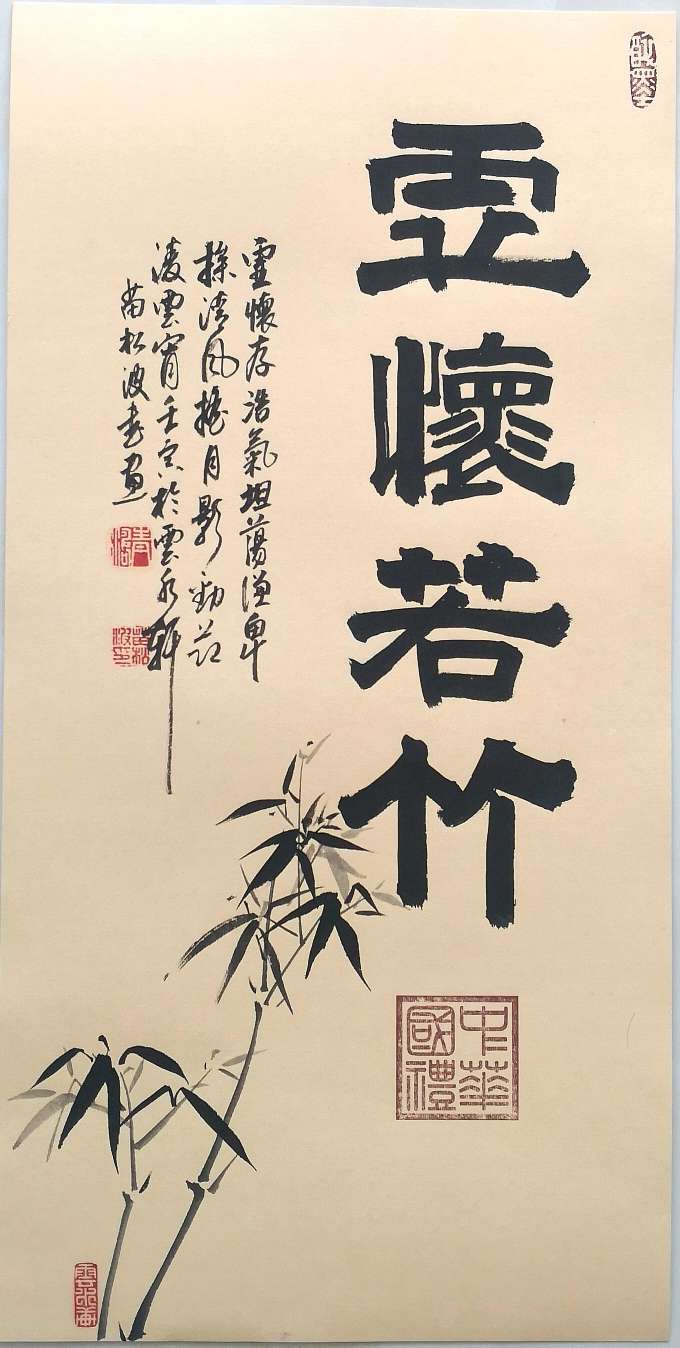 虛懷若竹
中華國禮
虛懷存浩氣坦蕩謙卑
操清風搖月影勁節
凌雲霄壬寅於雲水軒
苗松波書畫
苗松波印